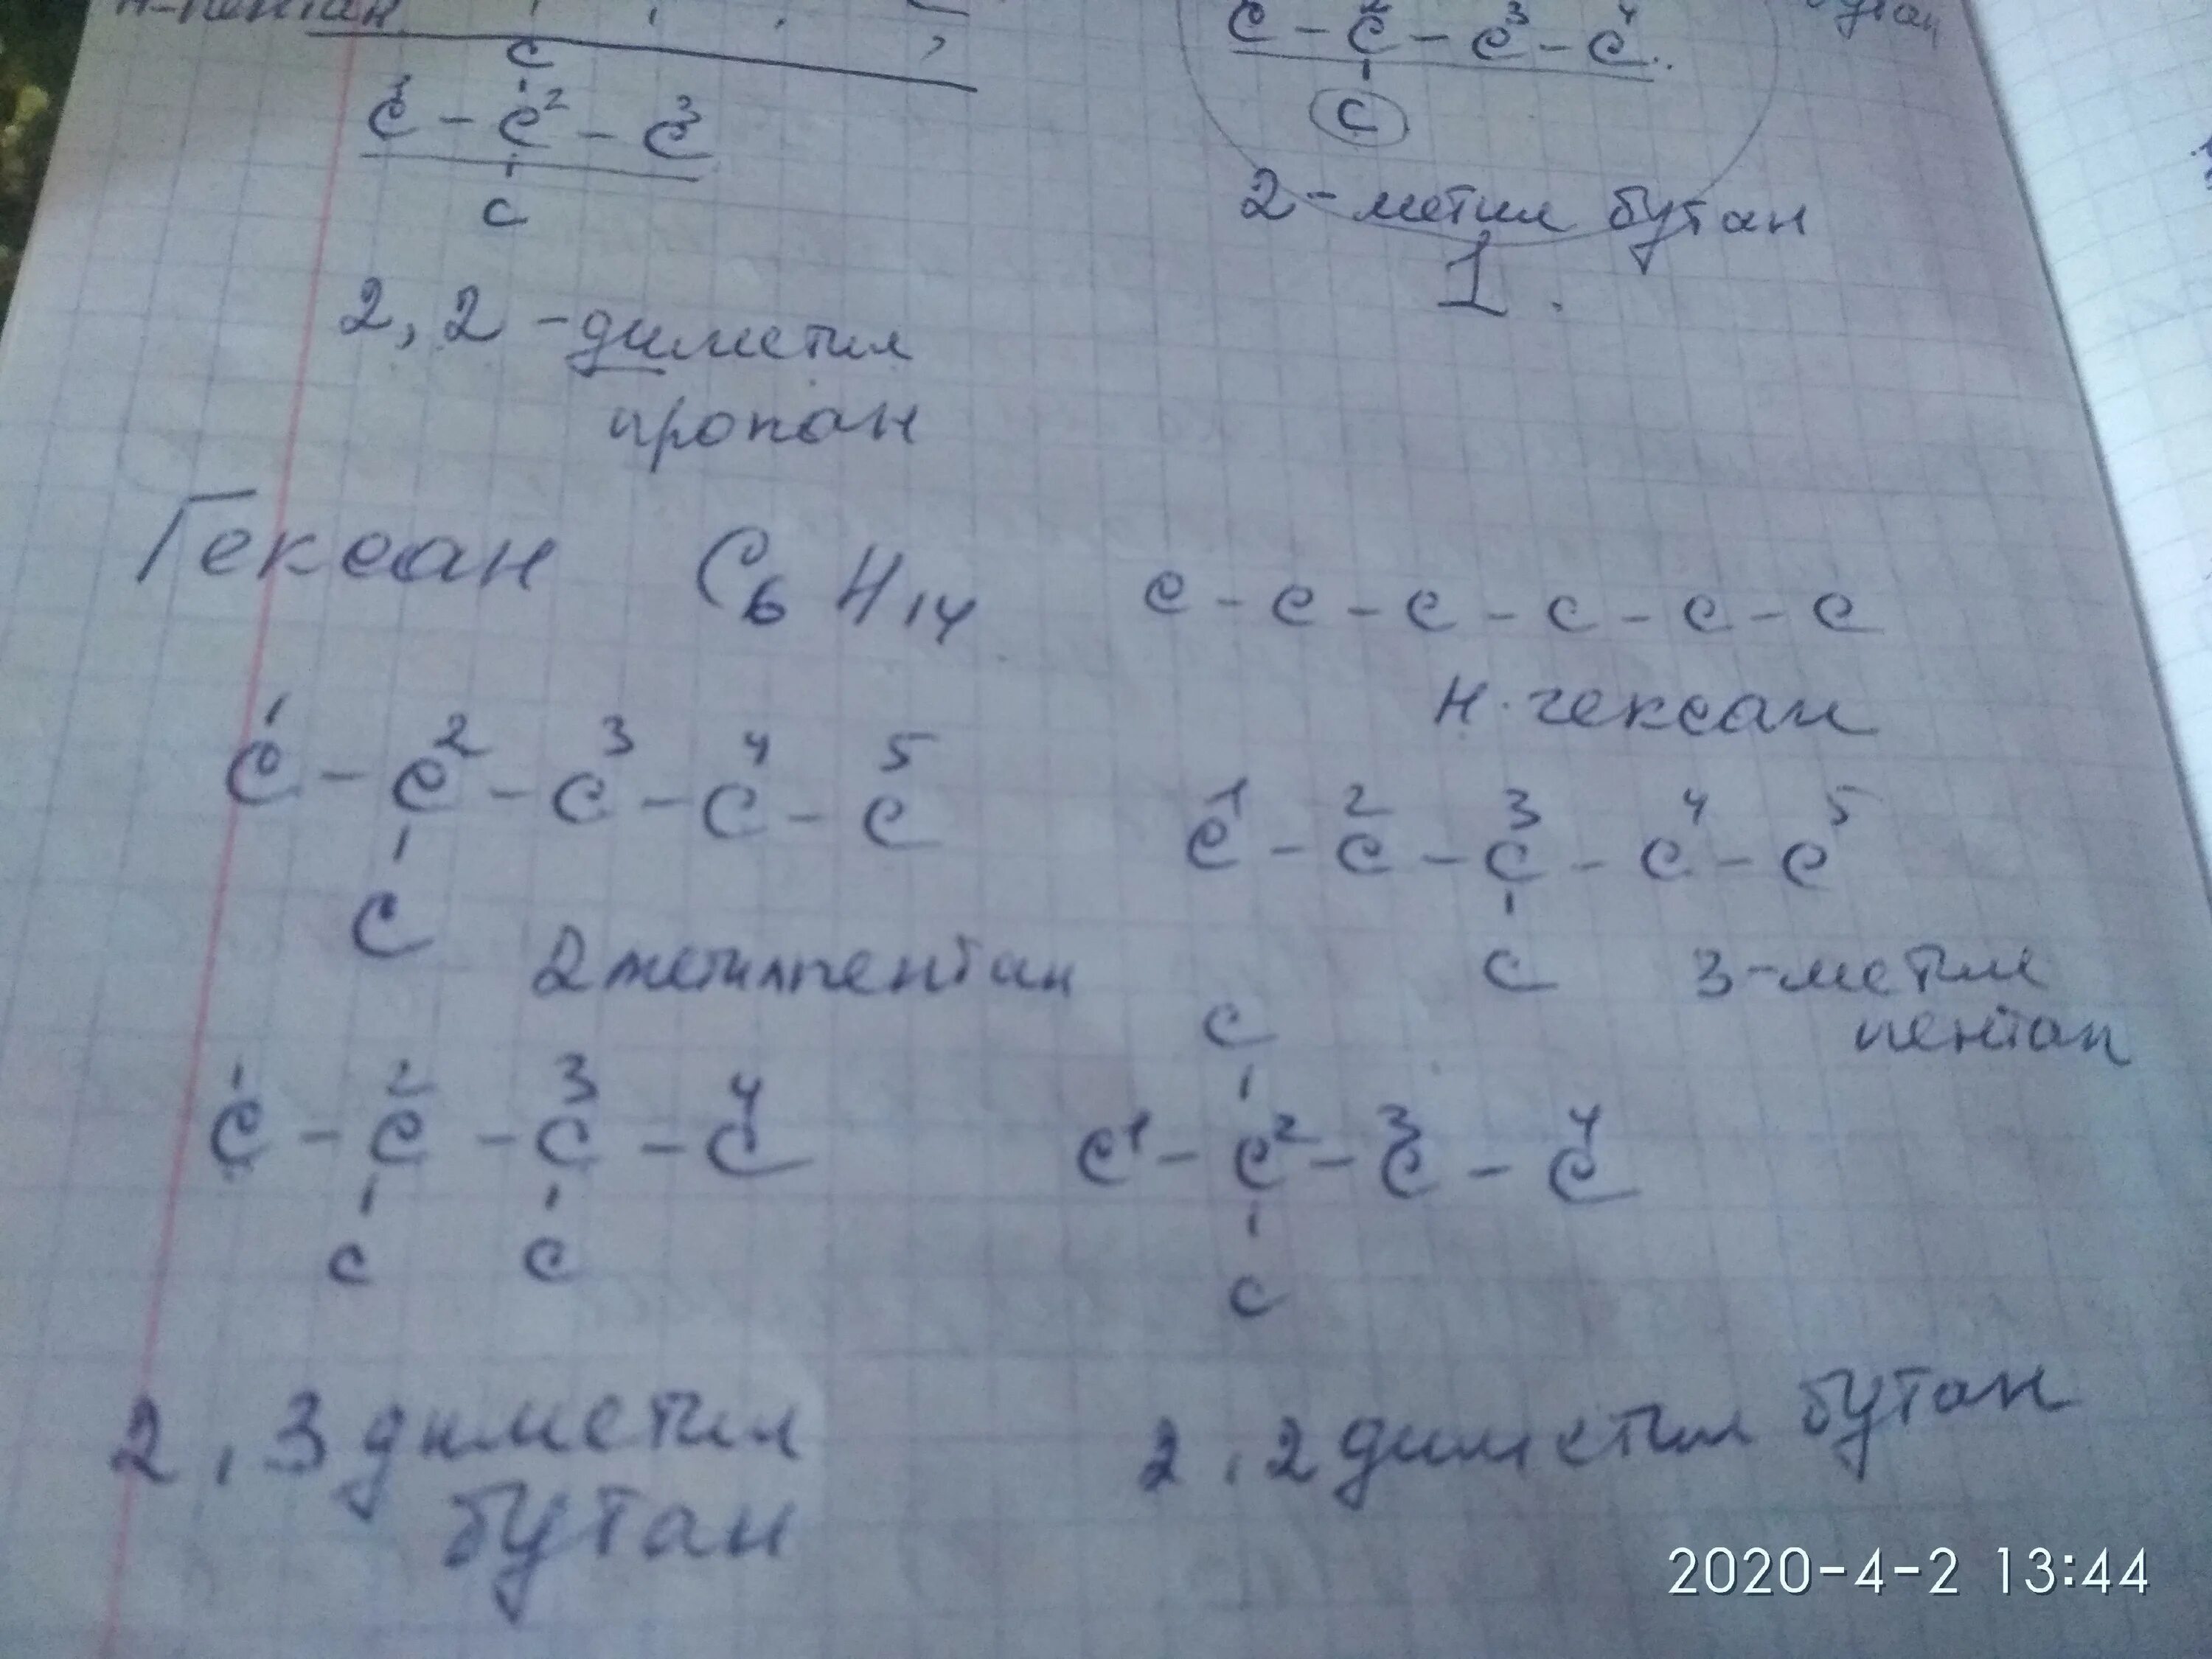 н-пентан
C
C¹ - C² - C³
C
2,2 - диметил
пропан
C - C² - C³ - C⁴
C
2 - метил бутан
1.
Гексан C₆H₁₄ C - C - C - C - C - C
н. гексан
C¹ - C² - C³ - C⁴ - C⁵
C
2 метилпентан
C¹ - C² - C³ - C⁴ - C⁵
C
3 - метил
пентан
C¹ - C² - C³ - C⁴
C C
2, 3 диметил
бутан
C
C¹ - C² - C³ - C⁴
C
2, 2 диметил бутан
2020-4-2 13:44